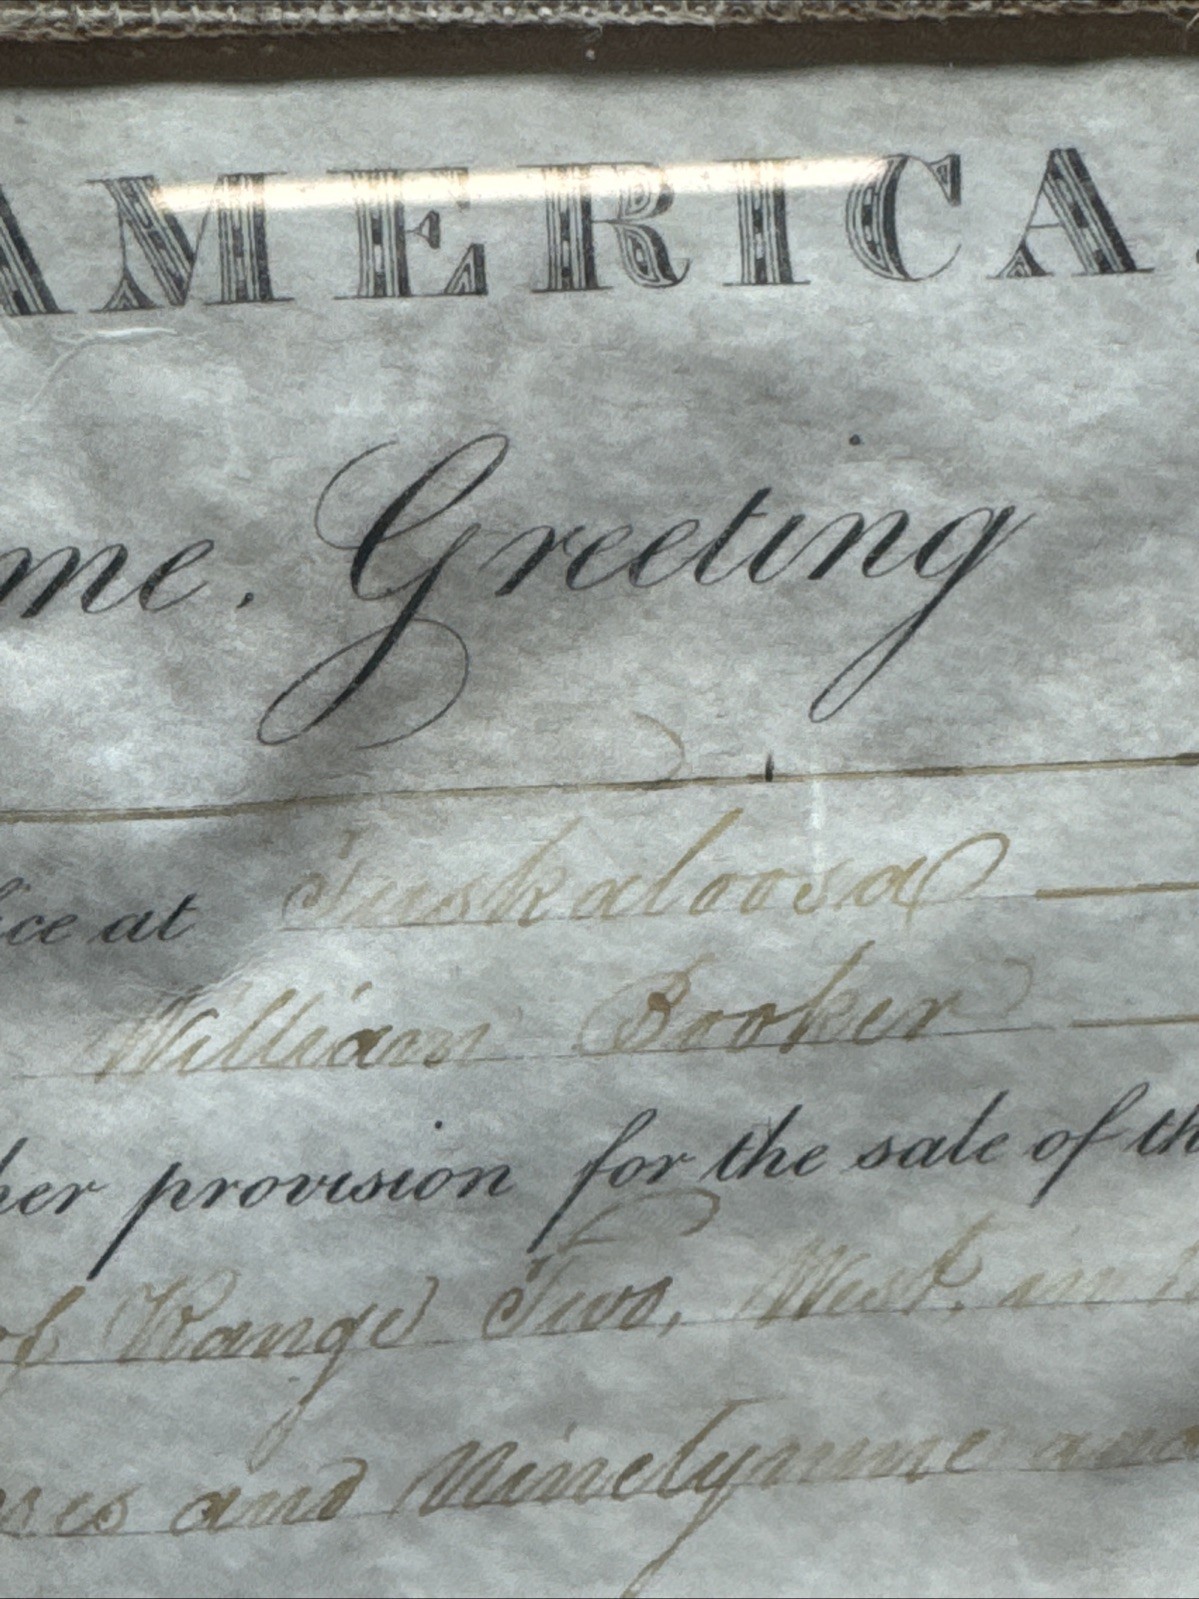 AMERICA.
me. Greeting
ice at Tuskaloosa
William Booker
her provision for the sale of th
of Range Two, West, in
and Ninetynine and